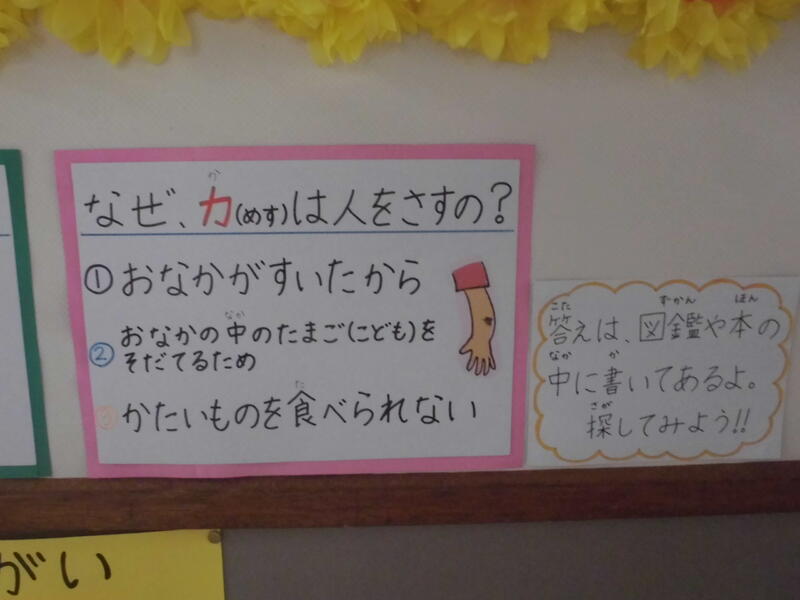 なぜ、カ(めす)は人をさすの?
①おなかがすいたから
②おなかの中のたまご(こども)を
そだてるため
③かたいものを食べられない
答えは、図鑑や本の
中に書いてあるよ。
探してみよう!!
がい